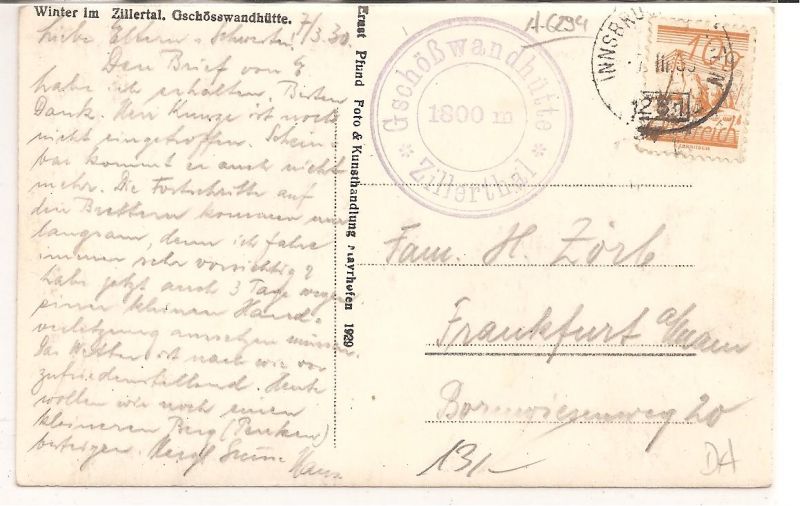 Winter im Zillertal. Gschösswandhütte.
7/3.30.
Liebe Eltern u. Schwester!
Den Brief von
habe ich erhalten. Besten
Dank. Herr Kunze ist noch
nicht eingetroffen. Schein-
bar kommt er auch nicht
mehr. Die Fortschritte auf
den Brettern kommen nur
langsam, denn ich fahre
immer sehr vorsichtig
habe jetzt auch 3 Tage wegen
einer kleinen Hand-
verletzung aussetzen müssen.
Das Wetter ist nach wie vor
zufriedenstellend. Heute
wollen wir noch einen
kleineren Berg (Penken)
besteigen. Herzl. Grüsse
Hans
Ernst Pfund Foto & Kunsthandlung Mayrhofen 1929
Gschößwandhütte
1800 m
* Zillerthal *
N-6294
INNSBRUCK
Österreich
Fam. H. Zörb
Frankfurt a/Main
Bornwiesenweg 20
13/-
DA